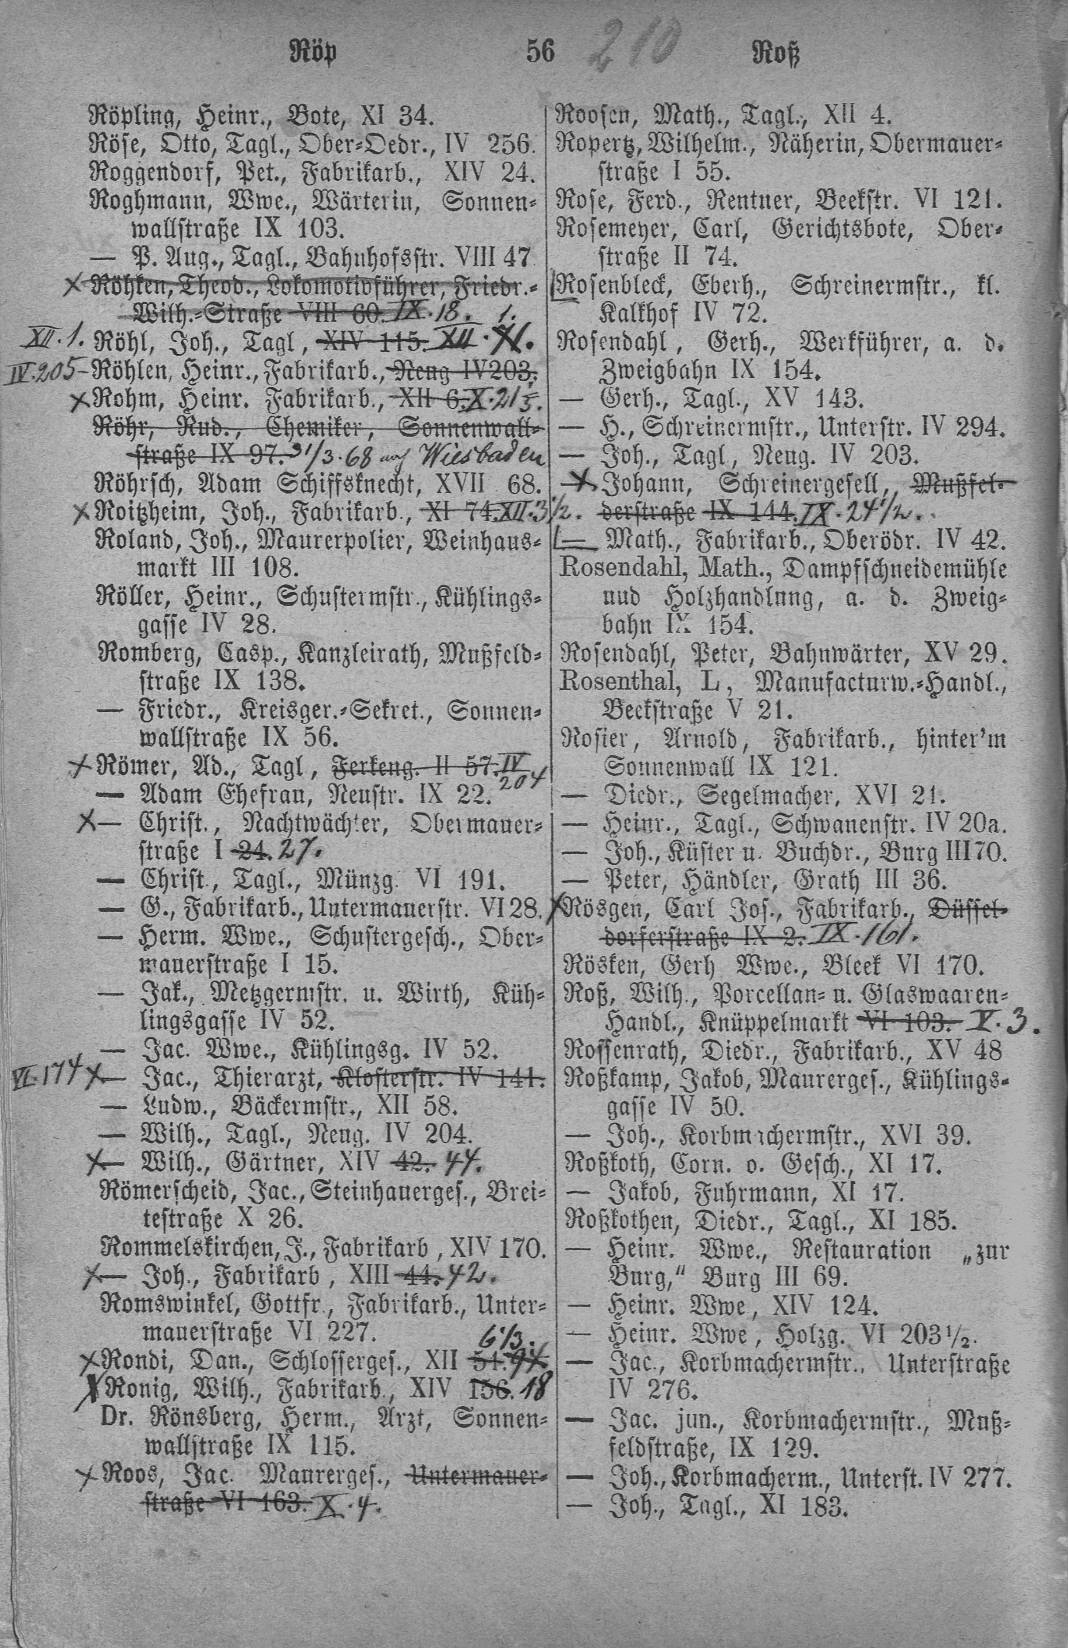 Röp 56 210 Roß
Röpling, Heinr., Bote, XI 34.
Röse, Otto, Tagl., Ober-Oedr., IV 256.
Roggendorf, Pet., Fabrikarb., XIV 24.
Roghmann, Wwe., Wärterin, Sonnen-
wallstraße IX 103.
— P. Aug., Tagl., Bahnhofsstr. VIII 47
× Röhken, Theod., Lokomotivführer, Friedr.-
Wilh.-Straße VIII 60. IX. 18. 1.
XII. 1. Röhl, Joh., Tagl, XIV 115. XII.
IV. 205 Röhlen, Heinr., Fabrikarb., Neng IV 203.
× Rohm, Heinr. Fabrikarb., XII 6. X. 215.
Röhr, Rud., Chemiker, Sonnenwall-
straße IX 97. 31/3. 68 Wiesbaden
Röhrsch, Adam Schiffsknecht, XVII 68.
× Roitzheim, Joh., Fabrikarb., XI 74. XII. 3½.
Roland, Joh., Maurerpolier, Weinhaus-
markt III 108.
Röller, Heinr., Schustermstr., Kühlings-
gasse IV 28.
Romberg, Casp., Kanzleirath, Mußfeld-
straße IX 138.
— Friedr., Kreisger.-Sekret., Sonnen-
wallstraße IX 56.
× Römer, Ad., Tagl, Ferkeng. II 57. IV
204
— Adam Ehefrau, Neustr. IX 22.
× — Christ., Nachtwächter, Obermauer-
straße I 24. 27.
— Christ., Tagl., Münzg. VI 191.
— G., Fabrikarb., Untermauerstr. VI 28.
— Herm. Wwe., Schustergesch., Ober-
mauerstraße I 15.
— Jak., Metzgermstr. u. Wirth, Küh-
lingsgasse IV 52.
— Jac. Wwe., Kühlingsg. IV 52.
VI. 174 × — Jac., Thierarzt, Klosterstr. IV 141.
— Ludw., Bäckermstr., XII 58.
— Wilh., Tagl., Neng. IV 204.
× — Wilh., Gärtner, XIV 42. 44.
Römerscheid, Jac., Steinhauerges., Brei-
testraße X 26.
Rommelskirchen, J., Fabrikarb, XIV 170.
× — Joh., Fabrikarb, XIII 44. 42.
Romswinkel, Gottfr., Fabrikarb., Unter-
mauerstraße VI 227.
6⅓.
× Rondi, Dan., Schlosserges., XII 54. 94.
× Ronig, Wilh., Fabrikarb., XIV 156. 18
Dr. Rönsberg, Herm., Arzt, Sonnen-
wallstraße IX 115.
× Roos, Jac. Maurerges., Untermauer-
straße VI 163. X. 4.
Roosen, Math., Tagl., XII 4.
Ropertz, Wilhelm., Näherin, Obermauer-
straße I 55.
Rose, Ferd., Rentner, Beekstr. VI 121.
Rosemeyer, Carl, Gerichtsbote, Ober-
straße II 74.
Rosenbleck, Eberh., Schreinermstr., kl.
Kalkhof IV 72.
Rosendahl, Gerh., Werkführer, a. d.
Zweigbahn IX 154.
— Gerh., Tagl., XV 143.
— H., Schreinermstr., Unterstr. IV 294.
— Joh., Tagl, Neng. IV 203.
× Johann, Schreinergesell, Mußfel-
derstraße IX 144. IX. 24½.
— Math., Fabrikarb., Oberödr. IV 42.
Rosendahl, Math., Dampfschneidemühle
und Holzhandlung, a. d. Zweig-
bahn IX 154.
Rosendahl, Peter, Bahnwärter, XV 29.
Rosenthal, L, Manufacturw.-Handl.,
Beekstraße V 21.
Rosier, Arnold, Fabrikarb., hinter'm
Sonnenwall IX 121.
— Diedr., Segelmacher, XVI 21.
— Heinr., Tagl., Schwanenstr. IV 20a.
— Joh., Küster u. Buchdr., Burg III 70.
— Peter, Händler, Grath III 36.
× Rösgen, Carl Jos., Fabrikarb., Düssel-
dorferstraße IX 2. IX. 161.
Rösken, Gerh Wwe., Bleek VI 170.
Roß, Wilh., Porcellan- u. Glaswaaren-
Handl., Knüppelmarkt VI 103. V. 3.
Rossenrath, Diedr., Fabrikarb., XV 48
Roßkamp, Jakob, Maurerges., Kühlings-
gasse IV 50.
— Joh., Korbmachermstr., XVI 39.
Roßkoth, Corn. o. Gesch., XI 17.
— Jakob, Fuhrmann, XI 17.
Roßkothen, Diedr., Tagl., XI 185.
— Heinr. Wwe., Restauration „zur
Burg,“ Burg III 69.
— Heinr. Wwe, XIV 124.
— Heinr. Wwe, Holzg. VI 203½.
— Jac., Korbmachermstr., Unterstraße
IV 276.
— Jac. jun., Korbmachermstr., Muß-
feldstraße, IX 129.
— Joh., Korbmacherm., Unterst. IV 277.
— Joh., Tagl., XI 183.